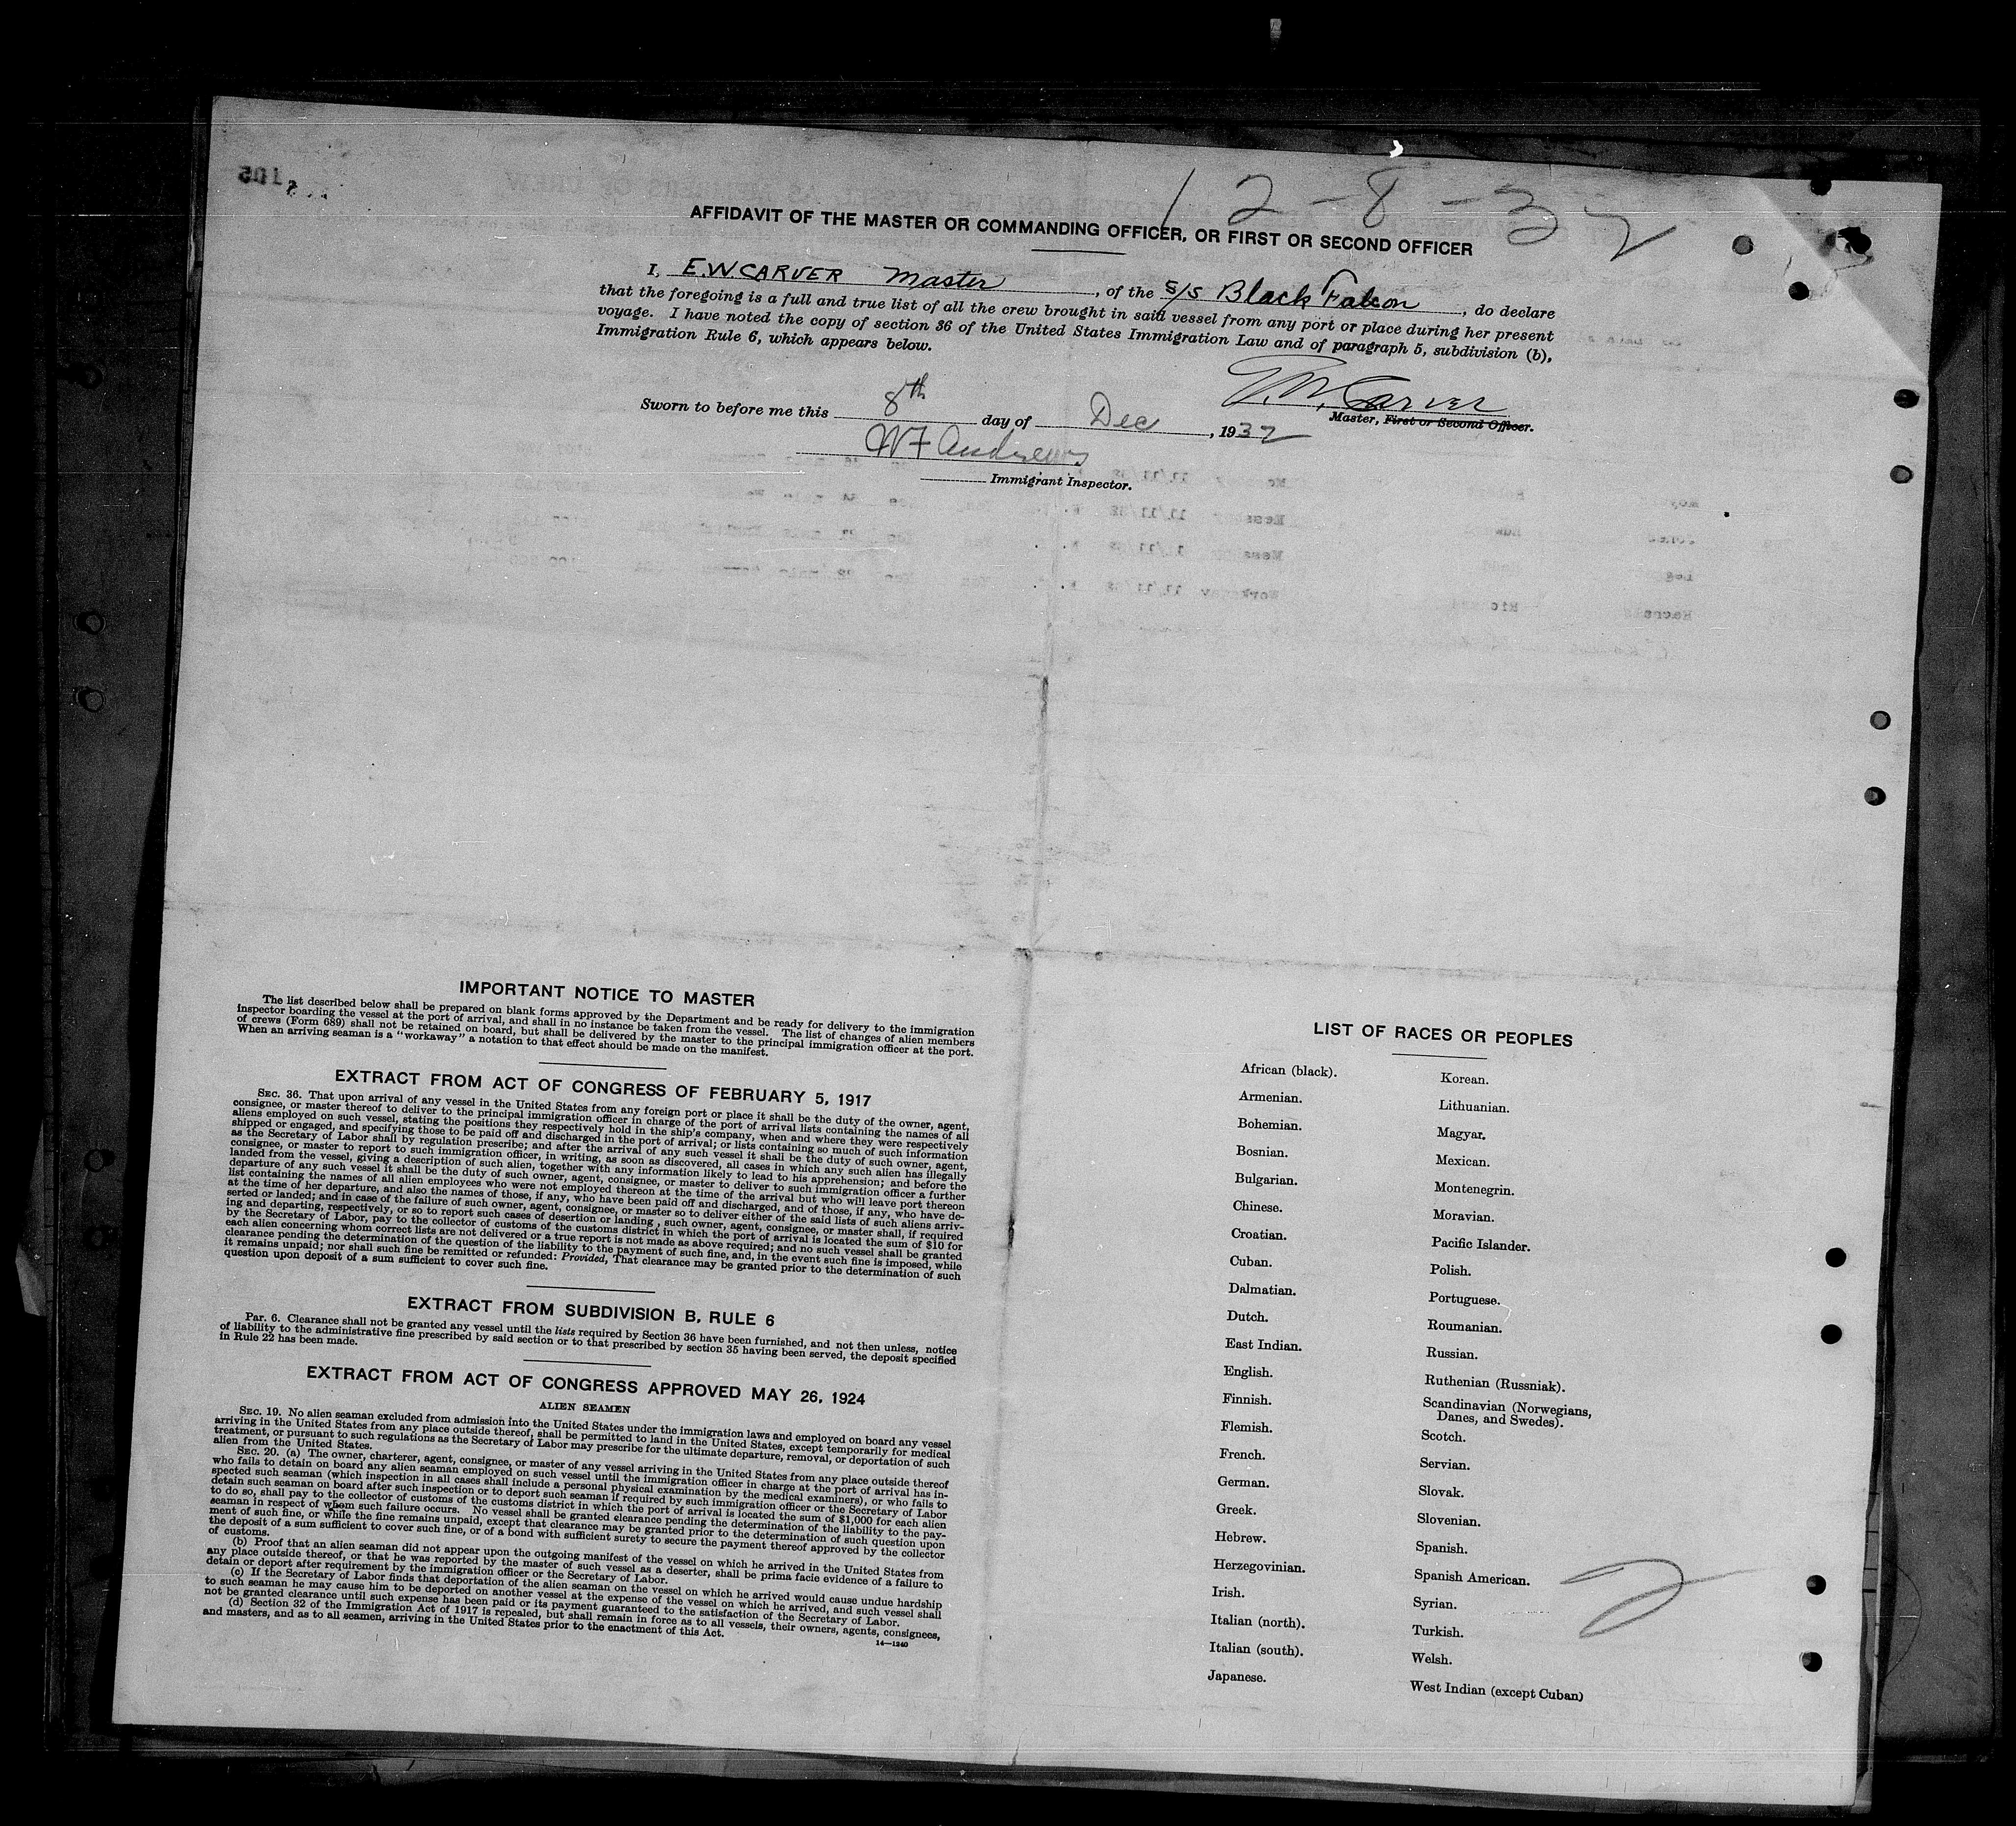 12-8-32
AFFIDAVIT OF THE MASTER OR COMMANDING OFFICER, OR FIRST OR SECOND OFFICER
I, E.W CARVER Master, of the S/S Black Falcon, do declare
that the foregoing is a full and true list of all the crew brought in said vessel from any port or place during her present
voyage. I have noted the copy of section 36 of the United States Immigration Law and of paragraph 5, subdivision (b),
Immigration Rule 6, which appears below.
E.W. Carver
Master, First or Second Officer.
Sworn to before me this 8th day of Dec, 1932
W F Andrews
Immigrant Inspector.
IMPORTANT NOTICE TO MASTER
The list described below shall be prepared on blank forms approved by the Department and be ready for delivery to the immigration
inspector boarding the vessel at the port of arrival, and shall in no instance be taken from the vessel. The list of changes of alien members
of crews (Form 689) shall not be retained on board, but shall be delivered by the master to the principal immigration officer at the port.
When an arriving seaman is a "workaway" a notation to that effect should be made on the manifest.
EXTRACT FROM ACT OF CONGRESS OF FEBRUARY 5, 1917
SEC. 36. That upon arrival of any vessel in the United States from any foreign port or place it shall be the duty of the owner, agent,
consignee, or master thereof to deliver to the principal immigration officer in charge of the port of arrival lists containing the names of all
aliens employed on such vessel, stating the positions they respectively hold in the ship's company, when and where they were respectively
shipped or engaged, and specifying those to be paid off and discharged in the port of arrival; or lists containing so much of such information
as the Secretary of Labor shall by regulation prescribe; and after the arrival of any such vessel it shall be the duty of such owner, agent,
consignee, or master to report to such immigration officer, in writing, as soon as discovered, all cases in which any such alien has illegally
landed from the vessel, giving a description of such alien, together with any information likely to lead to his apprehension; and before the
departure of any such vessel it shall be the duty of such owner, agent, consignee, or master to deliver to such immigration officer a further
list containing the names of all alien employees who were not employed thereon at the time of the arrival but who will leave port thereon
at the time of her departure, and also the names of those, if any, who have been paid off and discharged, and of those, if any, who have de-
serted or landed; and in case of the failure of such owner, agent, consignee, or master so to deliver either of the said lists of such aliens arriv-
ing and departing, respectively, or so to report such cases of desertion or landing, such owner, agent, consignee, or master shall, if required
by the Secretary of Labor, pay to the collector of customs of the customs district in which the port of arrival is located the sum of $10 for
each alien concerning whom correct lists are not delivered or a true report is not made as above required; and no such vessel shall be granted
clearance pending the determination of the question of the liability to the payment of such fine, and, in the event such fine is imposed, while
it remains unpaid; nor shall such fine be remitted or refunded: Provided, That clearance may be granted prior to the determination of such
question upon deposit of a sum sufficient to cover such fine.
EXTRACT FROM SUBDIVISION B, RULE 6
Par. 6. Clearance shall not be granted any vessel until the lists required by Section 36 have been furnished, and not then unless, notice
of liability to the administrative fine prescribed by said section or to that prescribed by section 35 having been served, the deposit specified
in Rule 22 has been made.
EXTRACT FROM ACT OF CONGRESS APPROVED MAY 26, 1924
ALIEN SEAMEN
SEC. 19. No alien seaman excluded from admission into the United States under the immigration laws and employed on board any vessel
arriving in the United States from any place outside thereof, shall be permitted to land in the United States, except temporarily for medical
treatment, or pursuant to such regulations as the Secretary of Labor may prescribe for the ultimate departure, removal, or deportation of such
alien from the United States.
SEC. 20. (a) The owner, charterer, agent, consignee, or master of any vessel arriving in the United States from any place outside thereof
who fails to detain on board any alien seaman employed on such vessel until the immigration officer in charge at the port of arrival has in-
spected such seaman (which inspection in all cases shall include a personal physical examination by the medical examiners), or who fails to
detain such seaman on board after such inspection or to deport such seaman if required by such immigration officer or the Secretary of Labor
to do so, shall pay to the collector of customs of the customs district in which the port of arrival is located the sum of $1,000 for each alien
seaman in respect of whom such failure occurs. No vessel shall be granted clearance pending the determination of the liability to the pay-
ment of such fine, or while the fine remains unpaid, except that clearance may be granted prior to the determination of such question upon
the deposit of a sum sufficient to cover such fine, or of a bond with sufficient surety to secure the payment thereof approved by the collector
of customs.
(b) Proof that an alien seaman did not appear upon the outgoing manifest of the vessel on which he arrived in the United States from
any place outside thereof, or that he was reported by the master of such vessel as a deserter, shall be prima facie evidence of a failure to
detain or deport after requirement by the immigration officer or the Secretary of Labor.
(c) If the Secretary of Labor finds that deportation of the alien seaman on the vessel on which he arrived would cause undue hardship
to such seaman he may cause him to be deported on another vessel at the expense of the vessel on which he arrived, and such vessel shall
not be granted clearance until such expense has been paid or its payment guaranteed to the satisfaction of the Secretary of Labor.
(d) Section 32 of the Immigration Act of 1917 is repealed, but shall remain in force as to all vessels, their owners, agents, consignees,
and masters, and as to all seamen, arriving in the United States prior to the enactment of this Act.
14—1240
LIST OF RACES OR PEOPLES
African (black).
Armenian.
Bohemian.
Bosnian.
Bulgarian.
Chinese.
Croatian.
Cuban.
Dalmatian.
Dutch.
East Indian.
English.
Finnish.
Flemish.
French.
German.
Greek.
Hebrew.
Herzegovinian.
Irish.
Italian (north).
Italian (south).
Japanese.
Korean.
Lithuanian.
Magyar.
Mexican.
Montenegrin.
Moravian.
Pacific Islander.
Polish.
Portuguese.
Roumanian.
Russian.
Ruthenian (Russniak).
Scandinavian (Norwegians,
Danes, and Swedes).
Scotch.
Servian.
Slovak.
Slovenian.
Spanish.
Spanish American.
Syrian.
Turkish.
Welsh.
West Indian (except Cuban)
2